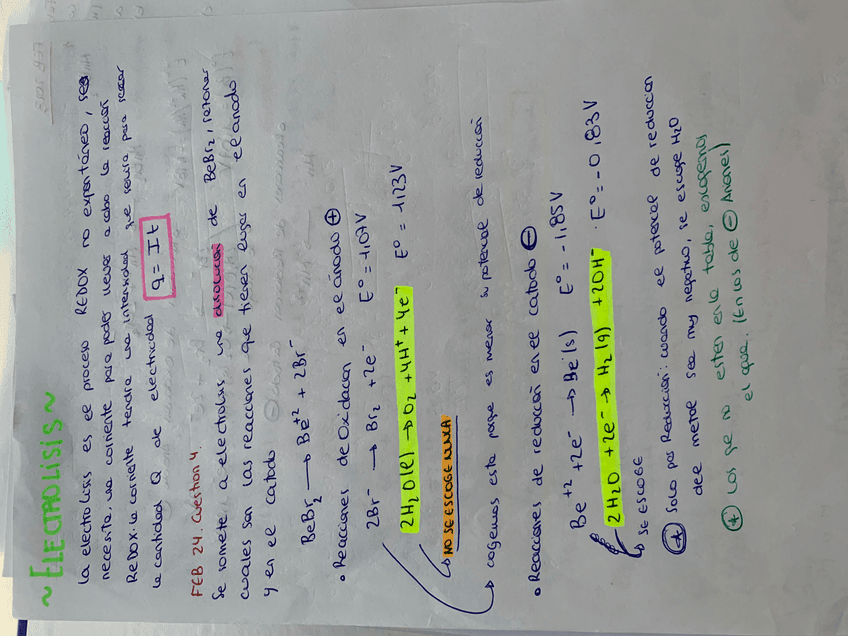 ~ ELECTROLISIS ~
La electrolisis es el proceso REDOX no expontáneo, se
necesita una corriente para poder llevar a cabo la reacción
REDOX. la corriente tendra una intensidad que servira para sacar
la cantidad Q de electricidad q = It
FEB 24. Cuestion 4.
Se somete a electrolisis una disolucion de BeBr2, razonar
cuales son las reacciones que tienen lugar en el anodo
y en el catodo
BeBr2 → Be+2 + 2Br-
• Reacciones de Oxidacion en el ánodo ⊕
2Br- → Br2 + 2e- E° = 1,07V
2H2O(l) → O2 + 4H+ + 4e- E° = 1,23V
NO SE ESCOGE NUNCA
cogemos esta porque es menor su potencial de reducción
• Reacciones de reducción en el catodo ⊖
Be+2 + 2e- → Be(s) E° = -1,85V
2H2O + 2e- → H2(g) + 2OH- · E° = -0,83V
SE ESCOGE
* Solo pas Reducción: cuando el potencial de reduccion
del metal sea muy negativo, se escoge H2O
* Los que no esten en la tabla, escogemos
el agua. (En los de ⊖ Aniones)